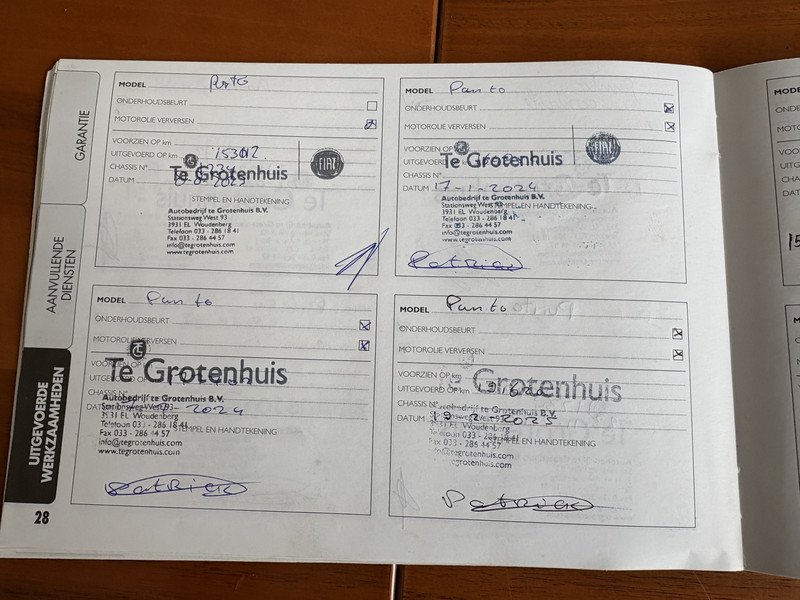 GARANTIE
AANVULLENDE
DIENSTEN
UITGEVOERDE
WERKZAAMHEDEN
28
MODEL Punto
ONDERHOUDSBEURT
MOTOROLIE VERVERSEN
VOORZIEN OP km
UITGEVOERD OP km
CHASSIS N°
DATUM
Te Grotenhuis
FIAT
STEMPEL EN HANDTEKENING
Autobedrijf te Grotenhuis B.V.
Stationsweg West 93
3931 EL Woudenberg
Telefoon 033 - 286 18 41
Fax 033 - 286 44 57
info@tegrotenhuis.com
www.tegrotenhuis.com
MODEL Punto
ONDERHOUDSBEURT
MOTOROLIE VERVERSEN
VOORZIEN OP km
UITGEVOERD OP
CHASSIS N°
DATUM 17-1-2024
Te Grotenhuis
FIAT
STEMPEL EN HANDTEKENING
Autobedrijf te Grotenhuis B.V.
Stationsweg West 93
3931 EL Woudenberg
Telefoon 033 - 286 18 41
Fax 033 - 286 44 57
info@tegrotenhuis.com
www.tegrotenhuis.com
Patrick
MODEL Punto
ONDERHOUDSBEURT
MOTOROLIE VERVERSEN
VOORZIEN OP
UITGEVOERD OP
CHASSIS N°
2024
Te Grotenhuis
Autobedrijf te Grotenhuis B.V.
Stationsweg West 93
3931 EL Woudenberg
Telefoon 033 - 286 18 41
STEMPEL EN HANDTEKENING
Fax 033 - 286 44 57
info@tegrotenhuis.com
www.tegrotenhuis.com
Patrick
MODEL Punto
ONDERHOUDSBEURT
MOTOROLIE VERVERSEN
VOORZIEN OP km
UITGEVOERD OP km
CHASSIS N°
DATUM
Grotenhuis
Autobedrijf te Grotenhuis B.V.
Woudenberg
Telefoon 033 - 286 18 41
STEMPEL EN HANDTEKENING
Fax 033 - 286 44 57
info@tegrotenhuis.com
Patrick